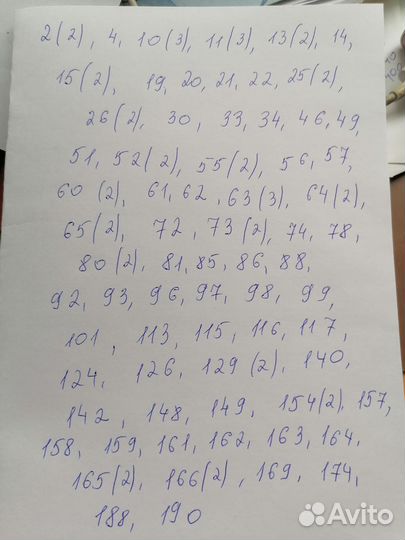 2(2), 4, 10(3), 11(3), 13(2), 14,
15(2), 19, 20, 21, 22, 25(2),
26(2), 30, 33, 34, 46, 49,
51, 52(2), 55(2), 56, 57,
60(2), 61, 62, 63(3), 64(2),
65(2), 72, 73(2), 74, 78,
80(2), 81, 85, 86, 88,
92, 93, 96, 97, 98, 99,
101, 113, 115, 116, 117,
124, 126, 129(2), 140,
142, 148, 149, 154(2), 157,
158, 159, 161, 162, 163, 164,
165(2), 166(2), 169, 174,
188, 190
Avito